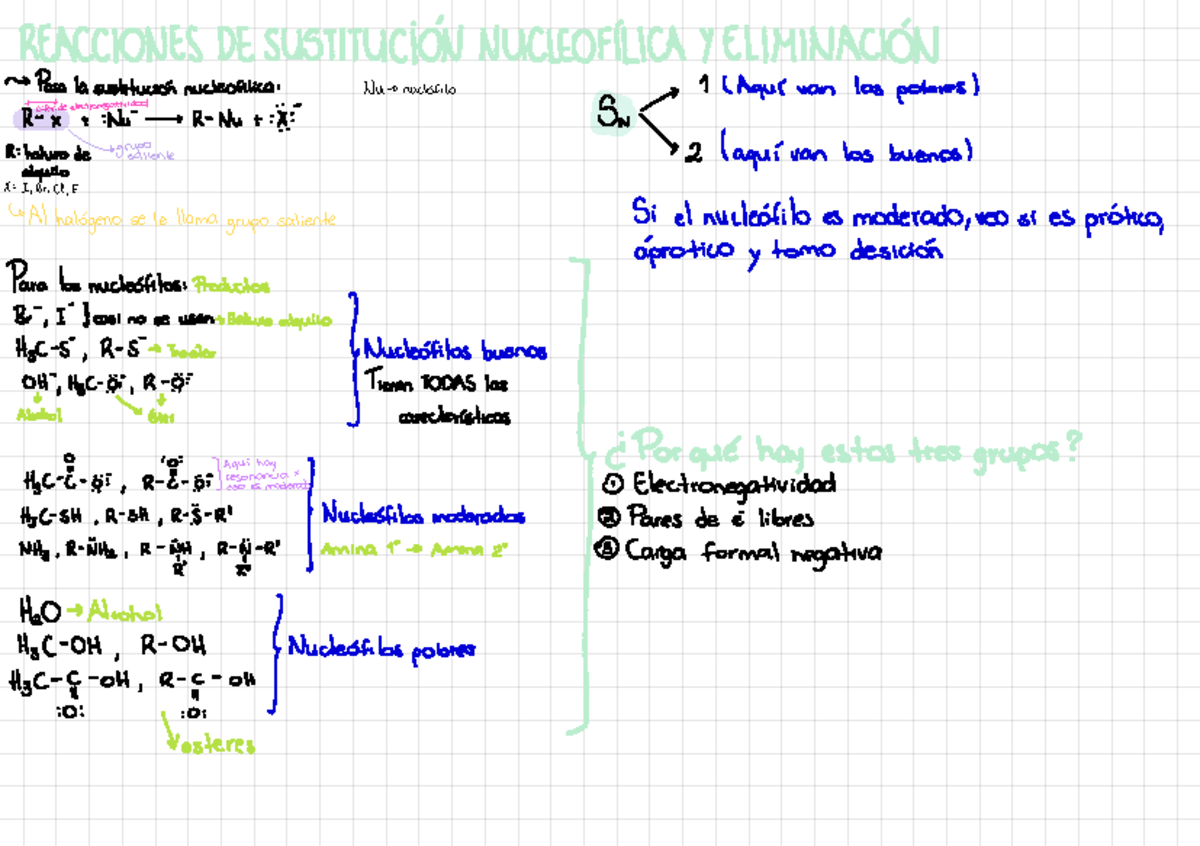 REACCIONES DE SUSTITUCIÓN NUCLEOFÍLICA Y ELIMINACIÓN
~> Para la sustitución nucleofílica:
Nu → nucleófilo
difer. de electronegatividad
R-X + :Nu⁻ → R-Nu + :Ẍ:⁻
grupo saliente
R: haluro de
alquilo
X: I, Br, Cl, F
↳ Al halógeno se le llama grupo saliente
Para los nucleófilos: Productos
Br⁻, I⁻ } casi no se usan → Haluro alquilo
H₃C-S⁻, R-S⁻ → Tioeter
OH⁻, H₃C-Ö:⁻, R-Ö:⁻
Alcohol
Éter
Nucleófilos buenos
Tienen TODAS las
características
O :O:
H₃C-C-Ö:⁻, R-C-Ö:⁻
Aquí hay
resonancia x
eso es moderado
H₃C-SH, R-SH, R-S̈-R'
NH₃, R-N̈H₂, R-N̈H, R-N̈-R'
R'
Nucleófilos moderados
Amina 1° → Amina 2°
H₂O → Alcohol
H₃C-OH, R-OH
H₃C-C-OH, R-C-OH
:O: :O:
esteres
Nucleófilos pobres
SN
1 (Aquí van los pobres)
2 (aquí van los buenos)
Si el nucleófilo es moderado, veo si es prótico,
áprotico y tomo desición
¿Por qué hay estos tres grupos?
① Electronegatividad
② Pares de e⁻ libres
③ Carga formal negativa